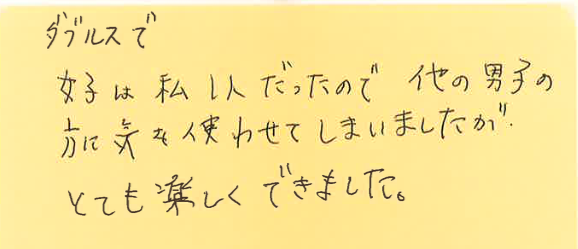 ダブルスで
女子は私1人だったので 他の男子の
方に気を使わせてしまいましたが、
とても楽しくできました。